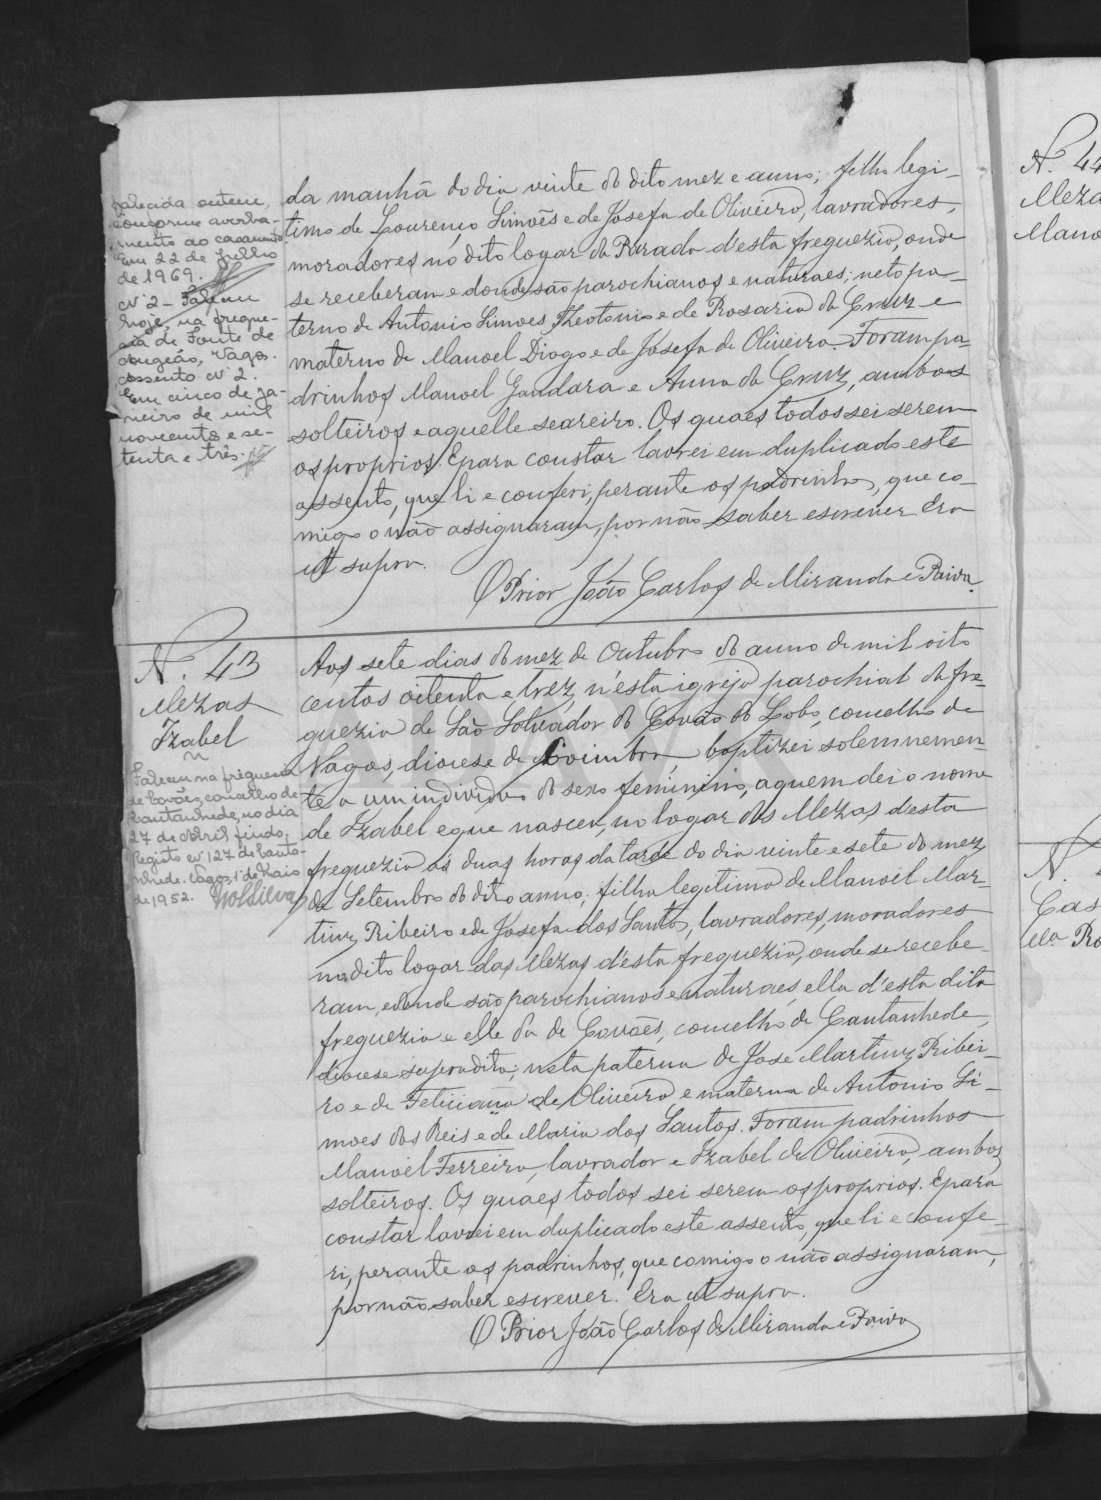 da manhã do dia vinte do dito mez e anno; filho legi-
timo de Lourenço Simões e de Josefa de Oliveira, lavradores,
moradores no dito logar da Parada d'esta freguezia, onde
se receberam e donde são parochianos e naturaes; neto pa-
terno de Antonio Simoes Theotonio e de Rosaria da Cruz e
materno de Manoel Diogo e de Josefa de Oliveira. Foram pa-
drinhos Manoel Gandara e Anna da Cruz, ambos
solteiros e aquelle seareiro. Os quaes todos sei serem
os proprios. E para constar lavrei em duplicado este
assento, que li e conferi, perante os padrinhos, que co-
migo o não assignaram, por não saber escrever Era
ut supra.
O Prior João Carlos de Miranda e Paiva.
falecida ontem,
conforme averba-
mento ao casamento
Em 22 de Julho
de 1969.
Nº 2 - Faleceu
hoje, na fregue-
sia de Fonte de
Angeão, Vagos.
Assento Nº 2.
Em cinco de ja-
neiro de mil
novecentos e se-
tenta e três.
N. 43
Mezas
Izabel
Faleceu na freguesia
de Covões, concelho de
Cantanhede, no dia
27 de Abril findo.
Registo nº 127 de Canta-
nhede. Vagos, 1 de Maio
de 1952.
Aos sete dias do mez de Outubro do anno de mil oito
centos oitenta e trez, n'esta igreja parochial da fre-
guezia de São Salvador do Covão do Lobo, concelho de
Vagos, diocese de Coimbra, baptizei solemnemen-
te a um individuo do sexo feminino, a quem dei o nome
de Izabel e que nasceu, no logar das Mezas d'esta
freguezia ás duas horas da tarde do dia vinte e sete do mez
de Setembro do dito anno; filha legitima de Manoel Mar-
tins Ribeiro e de Josefa dos Santos, lavradores, moradores
no dito logar das Mezas d'esta freguezia, onde se recebe-
ram, e donde são parochianos e naturaes, ella d'esta dita
freguezia e elle da de Covões, concelho de Cantanhede,
diocese supradita; neta paterna de Jose Martins Ribei-
ro e de Feliciana de Oliveira e materna de Antonio Si-
moes dos Reis e de Maria dos Santos. Foram padrinhos
Manoel Ferreira, lavrador e Izabel de Oliveira, ambos
solteiros. Os quaes todos sei serem os proprios. E para
constar lavrei em duplicado este assento, que li e confe-
ri, perante os padrinhos, que comigo o não assignaram,
por não saber escrever. Era ut supra.
O Prior João Carlos de Miranda e Paiva
N. 44